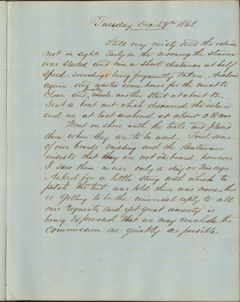 Tuesday Dec 29th 1863.
Still very misty and the island
not in sight. Early in the morning the steamer
was started and run a short distance at half
speed - soundings being frequently taken. Anchored
again and waited some hours for the mist to
clear and made another start at about
Sent a boat out which discovered the island
and we at last anchored at about 2 P.M.
Went on shore with the tools and placed
them where they are to be used. Find some
of our boards missing and the
insists that they are not on board however
I saw them myself only a day or two ago.
Asked for a little string with which to
patch the tent was told there was none, this
is getting to be the universal reply to all
our requests and yet great anxiety is
being expressed that we may conclude the
commission as quickly as possible.